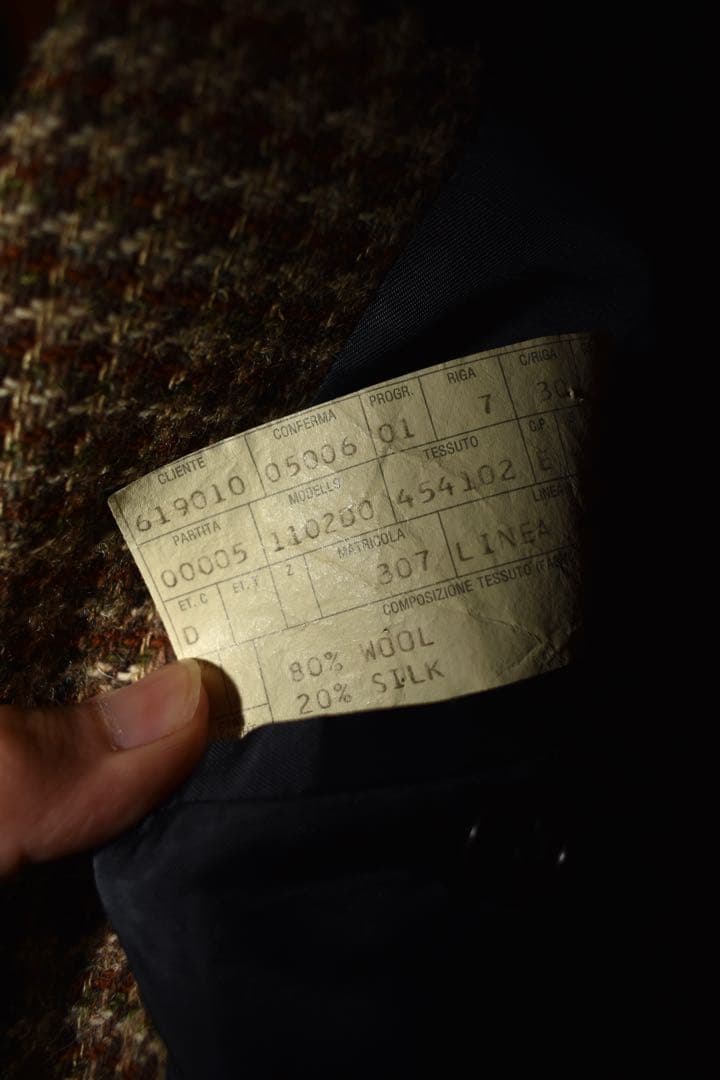 CLIENTE CONFERMA PROGR. RIGA C/RIGA
619010 05006 01 7 30
PARTITA MODELLO TESSUTO C.P.
00005 110200 454102 E
ET. C ET. T Z MATRICOLA LINEA
D 307 LINEA
COMPOSIZIONE TESSUTO
80% WOOL
20% SILK